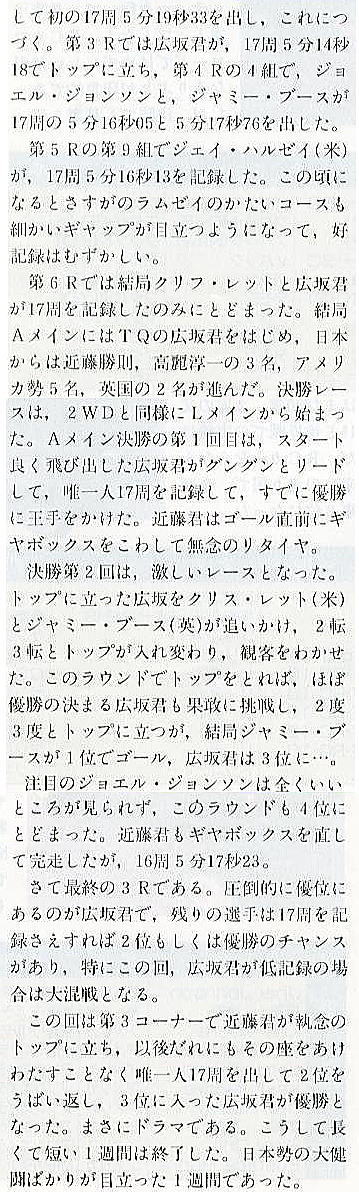 して初の17周5分19秒33を出し，これにつ
づく。第3Rでは広坂君が，17周5分14秒
18でトップに立ち，第4Rの4組で，ジョ
エル・ジョンソンと，ジャミー・ブースが
17周の5分16秒05と5分17秒76を出した。
第5Rの第9組でジェイ・ハルゼイ(米)
が，17周5分16秒13を記録した。この頃に
なるとさすがのラムゼイのかたいコースも
細かいギャップが目立つようになって，好
記録はむずかしい。
第6Rでは結局クリフ・レットと広坂君
が17周を記録したのみにとどまった。結局
AメインにはTQの広坂君をはじめ，日本
からは近藤勝則，高麗淳一の3名，アメリ
カ勢5名，英国の2名が進んだ。決勝レー
スは，2WDと同様にLメインから始まっ
た。Aメイン決勝の第1回目は，スタート
良く飛び出した広坂君がグングンとリード
して，唯一人17周を記録して，すでに優勝
に王手をかけた。近藤君はゴール直前にギ
ヤボックスをこわして無念のリタイヤ。
決勝第2回は，激しいレースとなった。
トップに立った広坂をクリス・レット(米)
とジャミー・ブース(英)が追いかけ，2転
3転とトップが入れ変わり，観客をわかせ
た。このラウンドでトップをとれば，ほぼ
優勝の決まる広坂君も果敢に挑戦し，2度
3度とトップに立つが，結局ジャミー・ブ
ースが1位でゴール，広坂君は3位に…。
注目のジョエル・ジョンソンは全くいい
ところが見られず，このラウンドも4位に
とどまった。近藤君もギヤボックスを直し
て完走したが，16周5分17秒23。
さて最終の3Rである。圧倒的に優位に
あるのが広坂君で，残りの選手は17周を記
録さえすれば2位もしくは優勝のチャンス
があり，特にこの回，広坂君が低記録の場
合は大混戦となる。
この回は第3コーナーで近藤君が執念の
トップに立ち，以後だれにもその座をあけ
わたすことなく唯一人17周を出して2位を
うばい返し，3位に入った広坂君が優勝と
なった。まさにドラマである。こうして長
くて短い1週間は終了した。日本勢の大健
闘ばかりが目立った1週間であった。